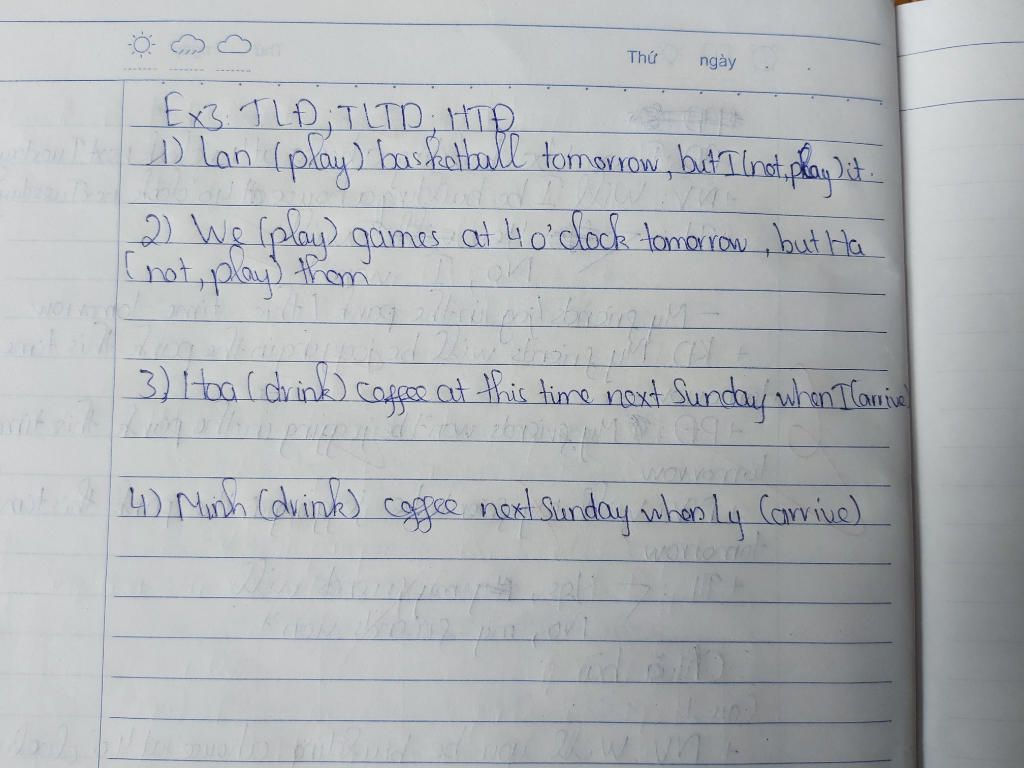 Thứ ngày
Ex3: TLĐ; TLTD; HTĐ
1) Lan (play) basketball tomorrow, but I (not, play) it.
2) We (play) games at 4 o'clock tomorrow, but Ha
(not, play) them
3) Hoa (drink) coffee at this time next Sunday when I (arrive)
4) Minh (drink) coffee next Sunday when Ly (arrive)